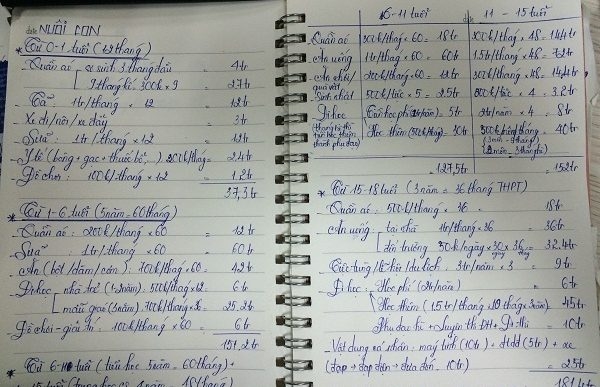 NUÔI CON
* Từ 0-1 tuổi (12 tháng)
Quần áo sơ sinh 3 tháng đầu = 4tr
9 tháng kế: 300k x 9 = 2.7tr
Tã: 1tr/tháng x 12 = 12tr
Xe đi/nôi/xe đẩy = 3tr
Sữa: 1tr/tháng x 12 = 12tr
Y tế (bông + gạc + thuốc bổ...) 200k/tháng = 2.4tr
Đồ chơi: 100k/tháng x 12 = 1.2tr
37,3tr
* Từ 1-6 tuổi (5 năm = 60 tháng)
Quần áo: 200k/tháng x 60 = 12tr
Sữa: 1tr/tháng x 60 = 60tr
Ăn (bột/dặm/cơm): 70k/tháng x 60 = 42tr
Đi học nhà trẻ (1-2 năm) 500k/tháng x 12 = 6tr
mẫu giáo (3 năm) 70k/tháng x 36 = 25,2tr
Đồ chơi - giải trí: 100k/tháng x 60 = 6tr
151,2tr
* Từ 6-11 tuổi (tiểu học 5 năm = 60 tháng) +
6-11 tuổi
11-15 tuổi
Quần áo 300k/tháng x 60 = 18tr 300k/tháng x 48 = 14,4tr
Ăn uống 1tr/tháng x 60 = 60tr 1.5tr/tháng x 48 = 72tr
Ăn chơi/ quà vặt 200k/tháng x 60 = 12tr 300k/tháng x 48 = 14,4tr
Sinh nhật 500k/tiệc x 5 = 2.5tr 800k/tiệc x 4 = 3.2tr
Đi học Tiểu học phí = 5tr 2tr/năm x 4 = 8tr
Học thêm (500k/tháng) 30tr 40tr
127,5tr = 152tr
* Từ 15-18 tuổi (3 năm = 36 tháng THPT)
Quần áo: 500k/tháng x 36 = 18tr
Ăn uống: tại nhà 1tr/tháng x 36 = 36tr
ở trường 30k/ngày x 30 ngày x 36 = 32.4tr
Tiệc tùng/lễ hội/du lịch: 3tr/năm x 3 = 9tr
Đi học: Học phí (2tr/năm) = 6tr
Học thêm (1.5tr/tháng x 10 tháng x 3 năm) 45tr
Phụ đạo hè + luyện thi ĐH + = 10tr
- Vật dụng cá nhân: máy tính (10tr) + đtdđ (5tr) + xe
(đạp → đạp điện → 10tr) = 25tr
181,4tr